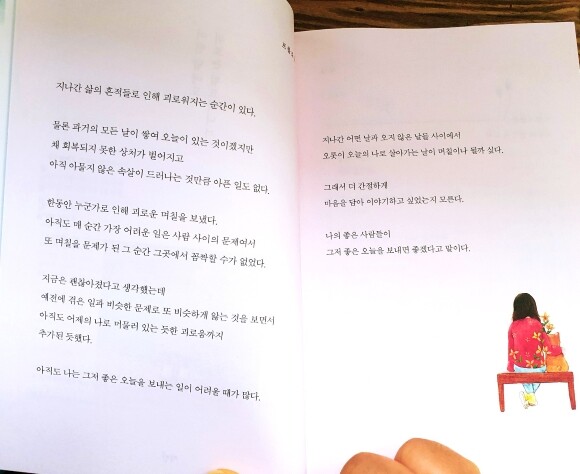 지나간 삶의 흔적들로 인해 괴로워지는 순간이 있다.
물론 과거의 모든 날이 쌓여 오늘이 있는 것이겠지만
채 회복되지 못한 상처가 벌어지고
아직 아물지 않은 속살이 드러나는 것만큼 아픈 일도 없다.
한동안 누군가로 인해 괴로운 며칠을 보냈다.
아직도 매 순간 가장 어려운 일은 사람 사이의 문제여서
또 며칠을 문제가 된 그 순간 그곳에서 꼼짝할 수가 없었다.
지금은 괜찮아졌다고 생각했는데
예전에 겪은 일과 비슷한 문제로 또 비슷하게 앓는 것을 보면서
아직도 어제의 나로 머물러 있는 듯한 괴로움까지
추가된 듯했다.
아직도 나는 그저 좋은 오늘을 보내는 일이 어려울 때가 많다.
지나간 어떤 날과 오지 않은 날들 사이에서
오롯이 오늘의 나로 살아가는 날이 며칠이나 될까 싶다.
그래서 더 간절하게
마음을 담아 이야기하고 싶었는지 모른다.
나의 좋은 사람들이
그저 좋은 오늘을 보내면 좋겠다고 말이다.